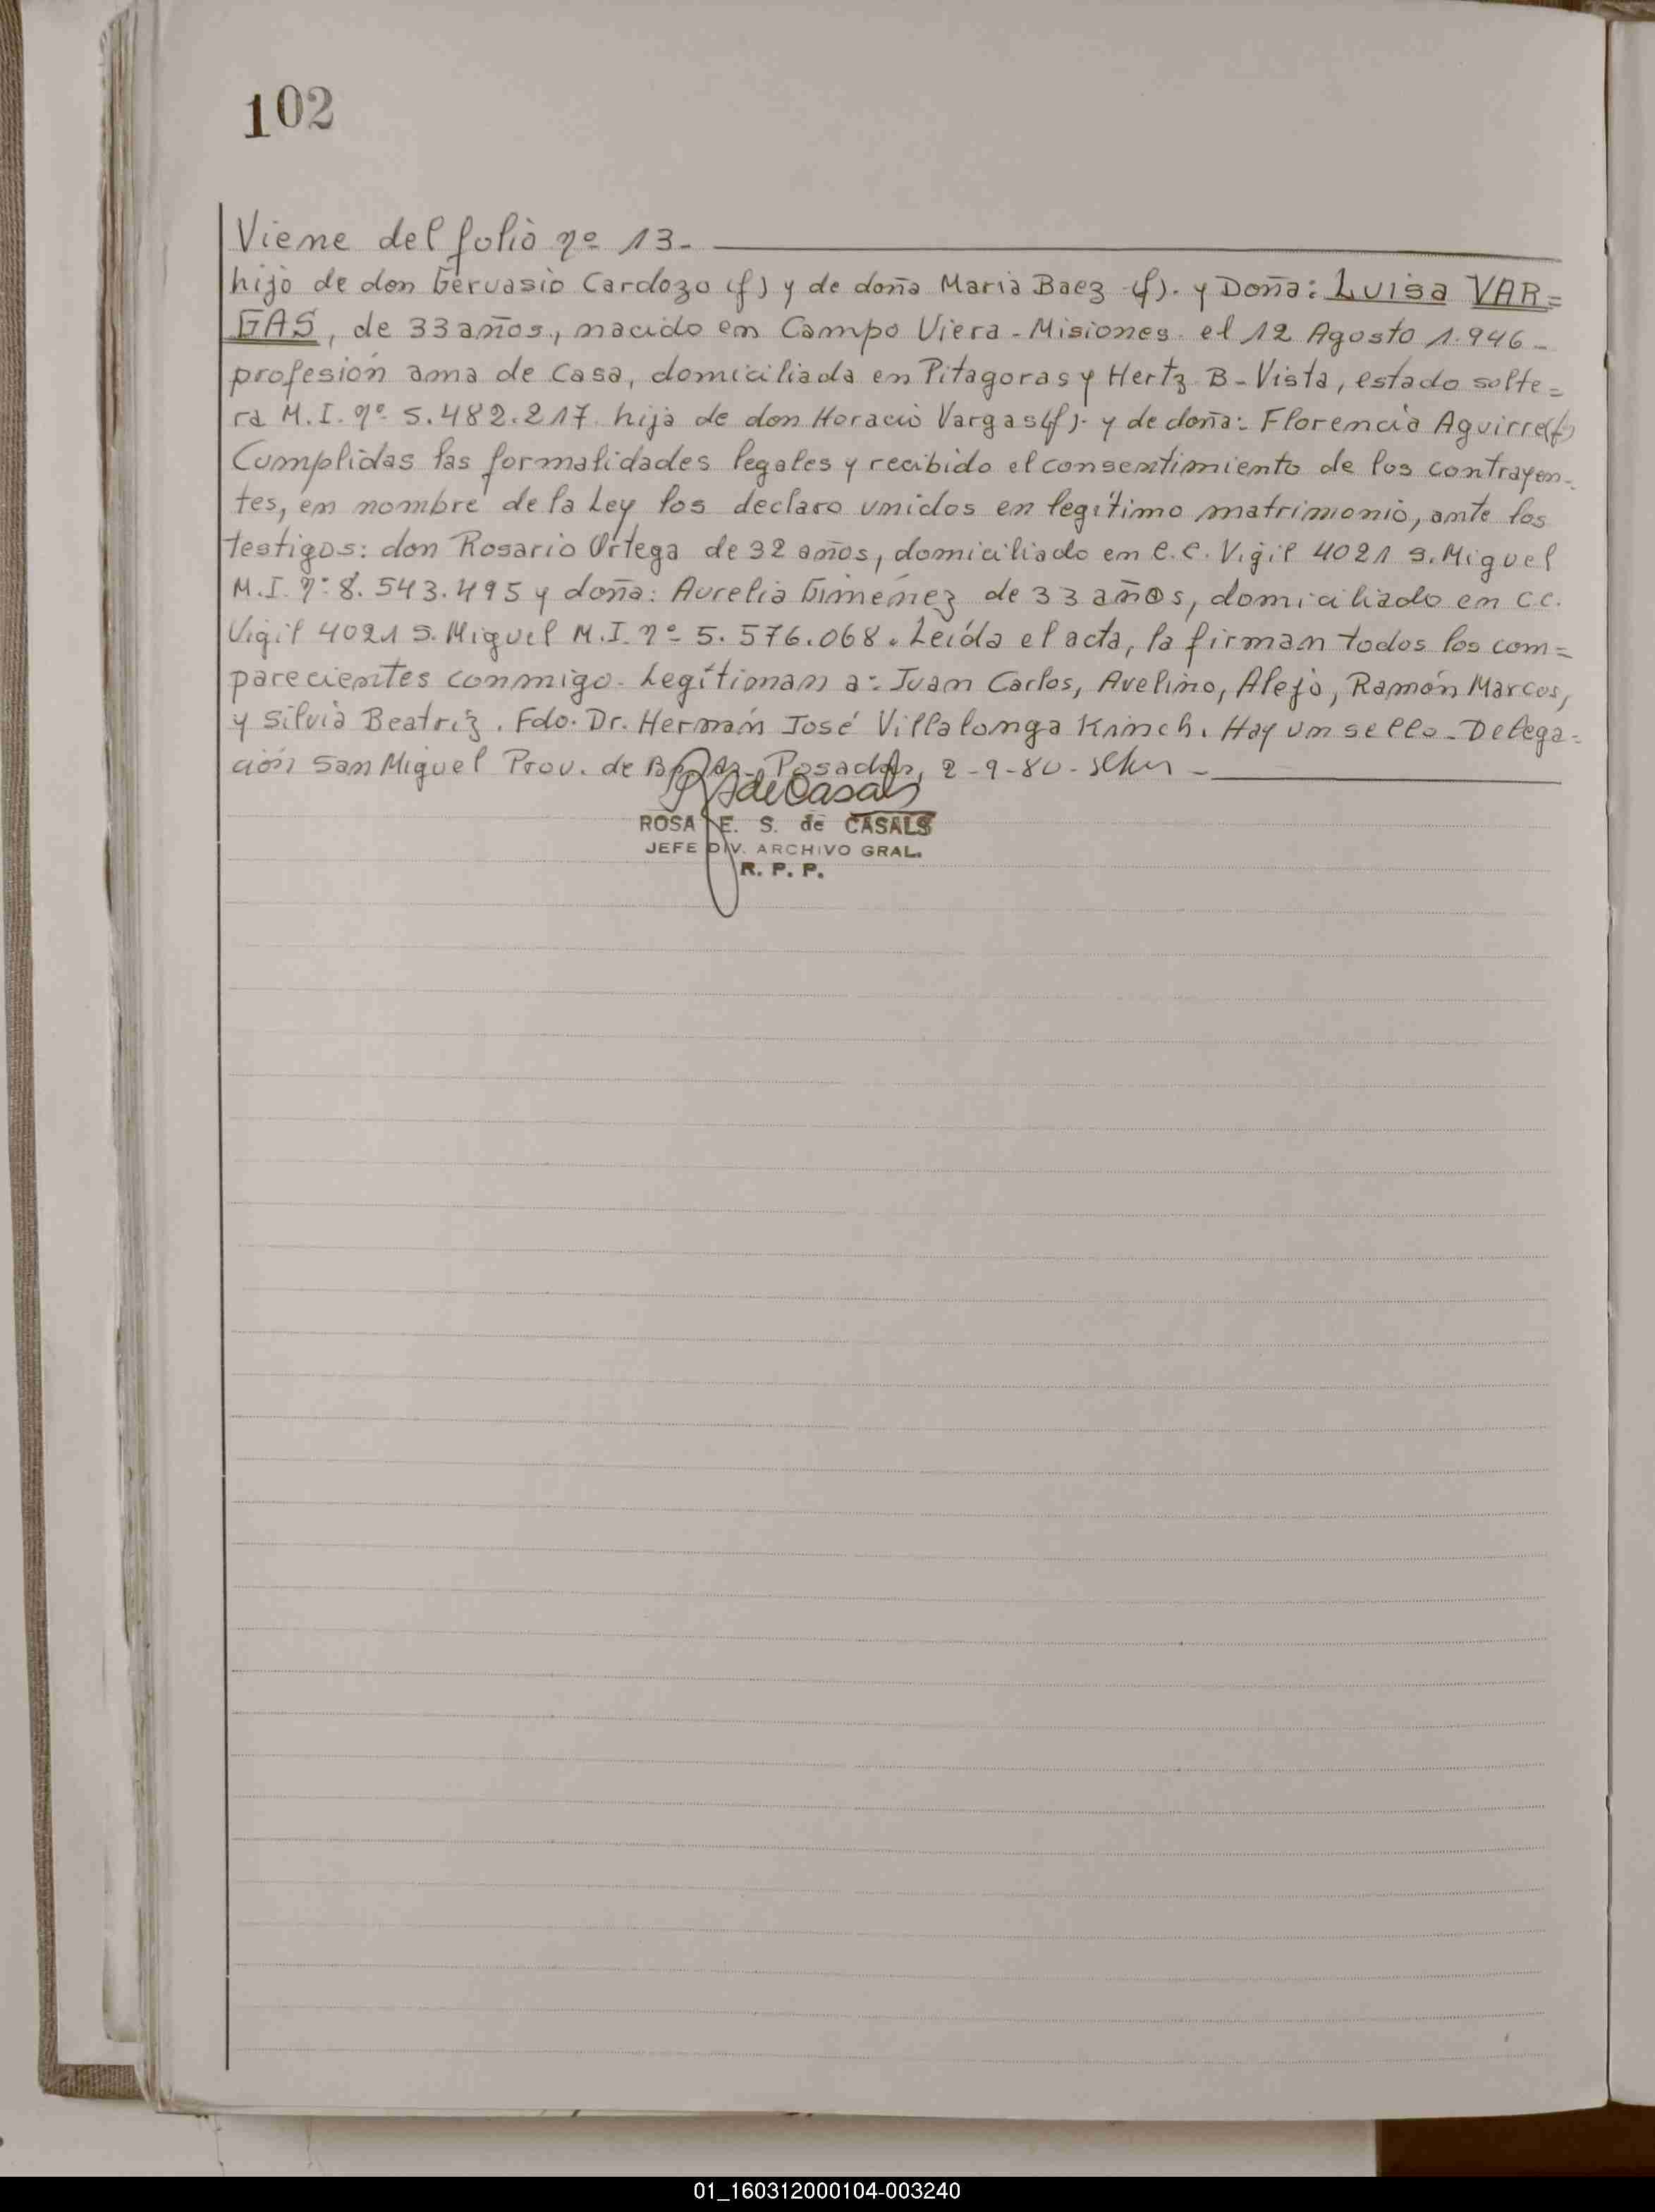 102
Viene del folio nº 13.
hijo de don Gervasio Cardozo (f) y de doña Maria Baez (f). y Doña: Luisa VAR=
GAS, de 33 años, nacido en Campo Viera - Misiones. el 12 Agosto 1.946 -
profesión ama de casa, domiciliada en Pitagoras y Hertz B - Vista, estado solte=
ra M.I. nº 5.482.217. hija de don Horacio Vargas (f). y de doña: Florencia Aguirre (f)
Cumplidas las formalidades legales y recibido el consentimiento de los contrayen-
tes, en nombre de la Ley los declaro unidos en legítimo matrimonio, ante los
testigos: don Rosario Ortega de 32 años, domiciliado en C.C. Vigil 4021 S. Miguel
M.I. nº 8.543.495 y doña: Aurelia Giménez de 33 años, domiciliado en C.C.
Vigil 4021 S. Miguel M.I. nº 5.576.068. Leída el acta, la firman todos los com=
parecientes conmigo. Legítiman a: Juan Carlos, Avelino, Alejo, Ramón Marcos,
y Silvia Beatriz. Fdo. Dr. Hernán José Villalonga Kninch. Hay un sello - Delega-
ción San Miguel Prov. de Bs. As. - Posadas, 2-9-80 -
de Casals
ROSA E. S. de CASALS
JEFE DIV. ARCHIVO GRAL.
R. P. P.
01_160312000104-003240